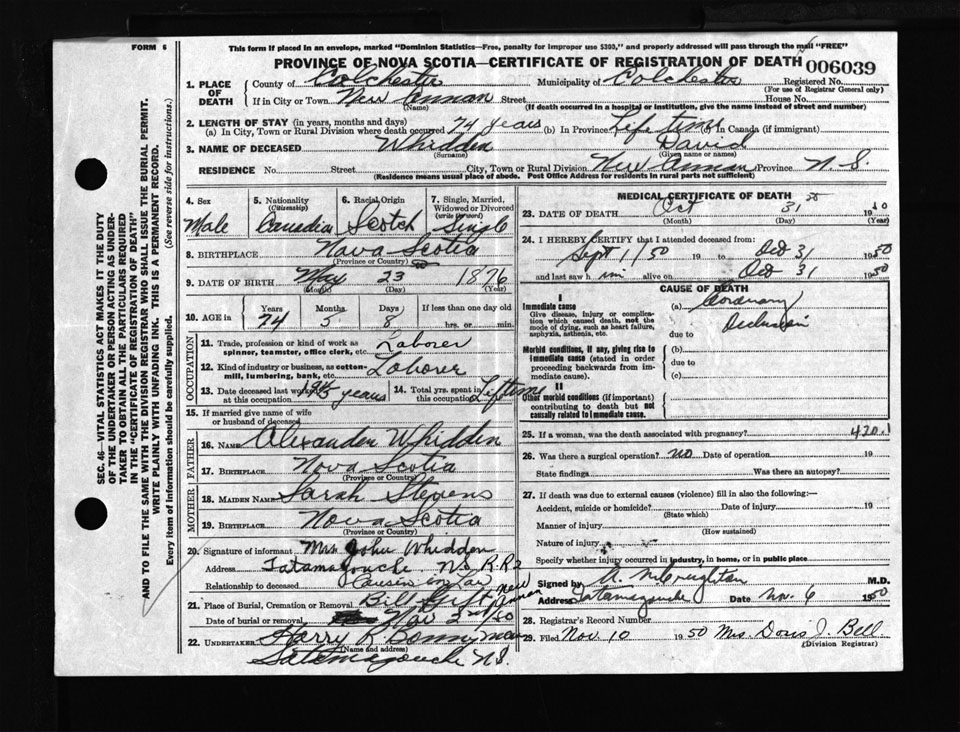 FORM 6
This form if placed in an envelope, marked "Dominion Statistics—Free, penalty for improper use $300," and properly addressed will pass through the mail "FREE"
PROVINCE OF NOVA SCOTIA—CERTIFICATE OF REGISTRATION OF DEATH 006039
1. PLACE OF DEATH County of Colchester Municipality of Colchester Registered No.
(For use of Registrar General only)
If in City or Town New Annan Street House No.
(Name) (If death occurred in a hospital or institution, give the name instead of street and number)
2. LENGTH OF STAY (in years, months and days)
(a) In City, Town or Rural Division where death occurred 74 years (b) In Province Life time (c) In Canada (if immigrant)
3. NAME OF DECEASED Whidden David
(Surname) (Given name or names)
RESIDENCE No. Street City, Town or Rural Division New Annan Province N.S.
(Residence means usual place of abode. Post Office Address for residents in rural parts not sufficient)
4. Sex Male
5. Nationality (Citizenship) Canadian
6. Racial Origin Scotch
7. Single, Married, Widowed or Divorced (write the word) Single
8. BIRTHPLACE Nova Scotia
(Province or Country)
9. DATE OF BIRTH May 23 1876
(Month) (Day) (Year)
10. AGE in Years 74 Months 5 Days 8 If less than one day old hrs. or min.
OCCUPATION
11. Trade, profession or kind of work as spinner, teamster, office clerk, etc. Laborer
12. Kind of industry or business, as cotton-mill, lumbering, bank, etc. Laborer
13. Date deceased last worked at this occupation years
14. Total yrs. spent in this occupation Lifetime
15. If married give name of wife or husband of deceased
FATHER
16. NAME Alexander Whidden
17. BIRTHPLACE Nova Scotia
(Province or Country)
MOTHER
18. MAIDEN NAME Sarah Stevens
19. BIRTHPLACE Nova Scotia
(Province or Country)
20. Signature of informant Mrs John Whidden
Address Tatamagouche N.S. R.R2
Relationship to deceased Cousin in law
21. Place of Burial, Cremation or Removal Bill New Annan
Date of burial or removal Nov 2nd /50
22. UNDERTAKER Harry R Bonnyman
(Name and address)
Tatamagouche N.S.
MEDICAL CERTIFICATE OF DEATH
23. DATE OF DEATH Oct 31st 19
(Month) (Day) (Year)
24. I HEREBY CERTIFY that I attended deceased from:
Sept 1/50 19 to Oct 31 1950
and last saw h im alive on Oct 31 1950
CAUSE OF DEATH
I
Immediate cause (a) Coronary Occlusion
Give disease, injury or complication which caused death, not the mode of dying, such as heart failure, asphyxia, asthenia, etc.
due to
Morbid conditions, if any, giving rise to immediate cause (stated in order proceeding backwards from immediate cause).
(b)
due to
(c)
II
Other morbid conditions (if important) contributing to death but not causally related to immediate cause.
25. If a woman, was the death associated with pregnancy? 420.1
26. Was there a surgical operation? no Date of operation 19
State findings Was there an autopsy?
27. If death was due to external causes (violence) fill in also the following:—
Accident, suicide or homicide? Date of injury 19
(State which)
Manner of injury
(How sustained)
Nature of injury
Specify whether injury occurred in industry, in home, or in public place
Signed by M.D.
Address Tatamagouche Date Nov. 6 1950
28. Registrar's Record Number
29. Filed Nov. 10 1950 Mrs. Doris J. Bell
(Division Registrar)
SEC. 46—VITAL STATISTICS ACT MAKES IT THE DUTY
OF THE UNDERTAKER OR PERSON ACTING AS UNDER-
TAKER TO OBTAIN ALL THE PARTICULARS REQUIRED
IN THE "CERTIFICATE OF REGISTRATION OF DEATH"
AND TO FILE THE SAME WITH THE DIVISION REGISTRAR WHO SHALL ISSUE THE BURIAL PERMIT.
WRITE PLAINLY WITH UNFADING INK. THIS IS A PERMANENT RECORD.
Every item of information should be carefully supplied. (See reverse side for instructions.)